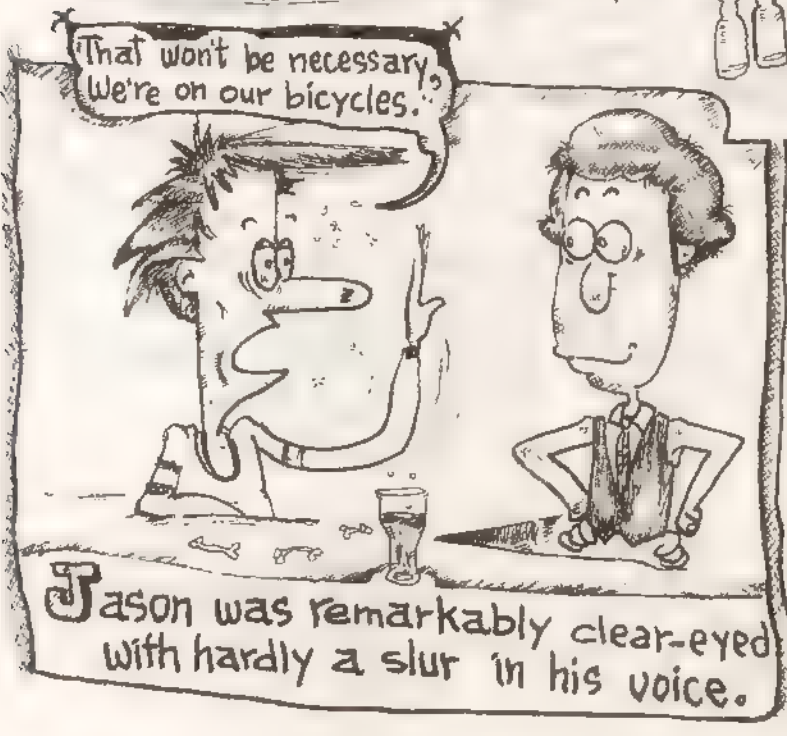 "That won't be necessary,
We're on our bicycles."
Jason was remarkably clear-eyed
with hardly a slur in his voice.